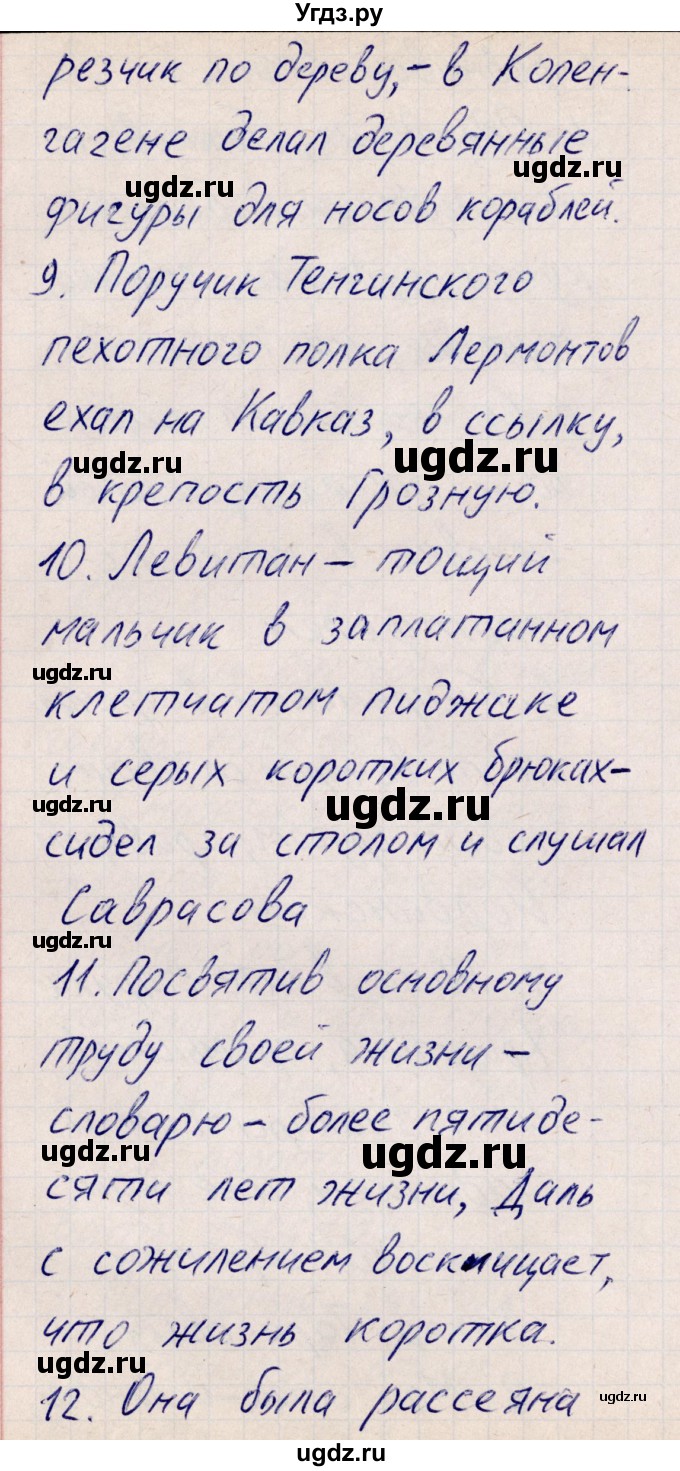 Угдз.ру
резчик по дереву,– в Копен-
гагене делал деревянные
ugdz.ru
ugdz.ru
фигуры для носов кораблей.
9. Поручик Тенгинского
пехотного полка Лермонтов
ехал на Кавказ, в ссылку,
ugdz.ru
ugdz.ru
в крепость Грозную.
10. Левитан – тощий
мальчик в заплатанном
ugdz.ru
клетчатом пиджаке
и серых коротких брюках–
ugdz.ru
ugdz.ru
сидел за столом и слушал
Саврасова
ugdz.ru
11. Посвятив основному
труду своей жизни –
словарю – более пятиде-
ugdz.ru
ugdz.ru
сяти лет жизни, Даль
с сожилением воскницает,
что жизнь коротка.
ugdz.ru
12. Она была рассеяна
ugdz.ru
ugdz.ru